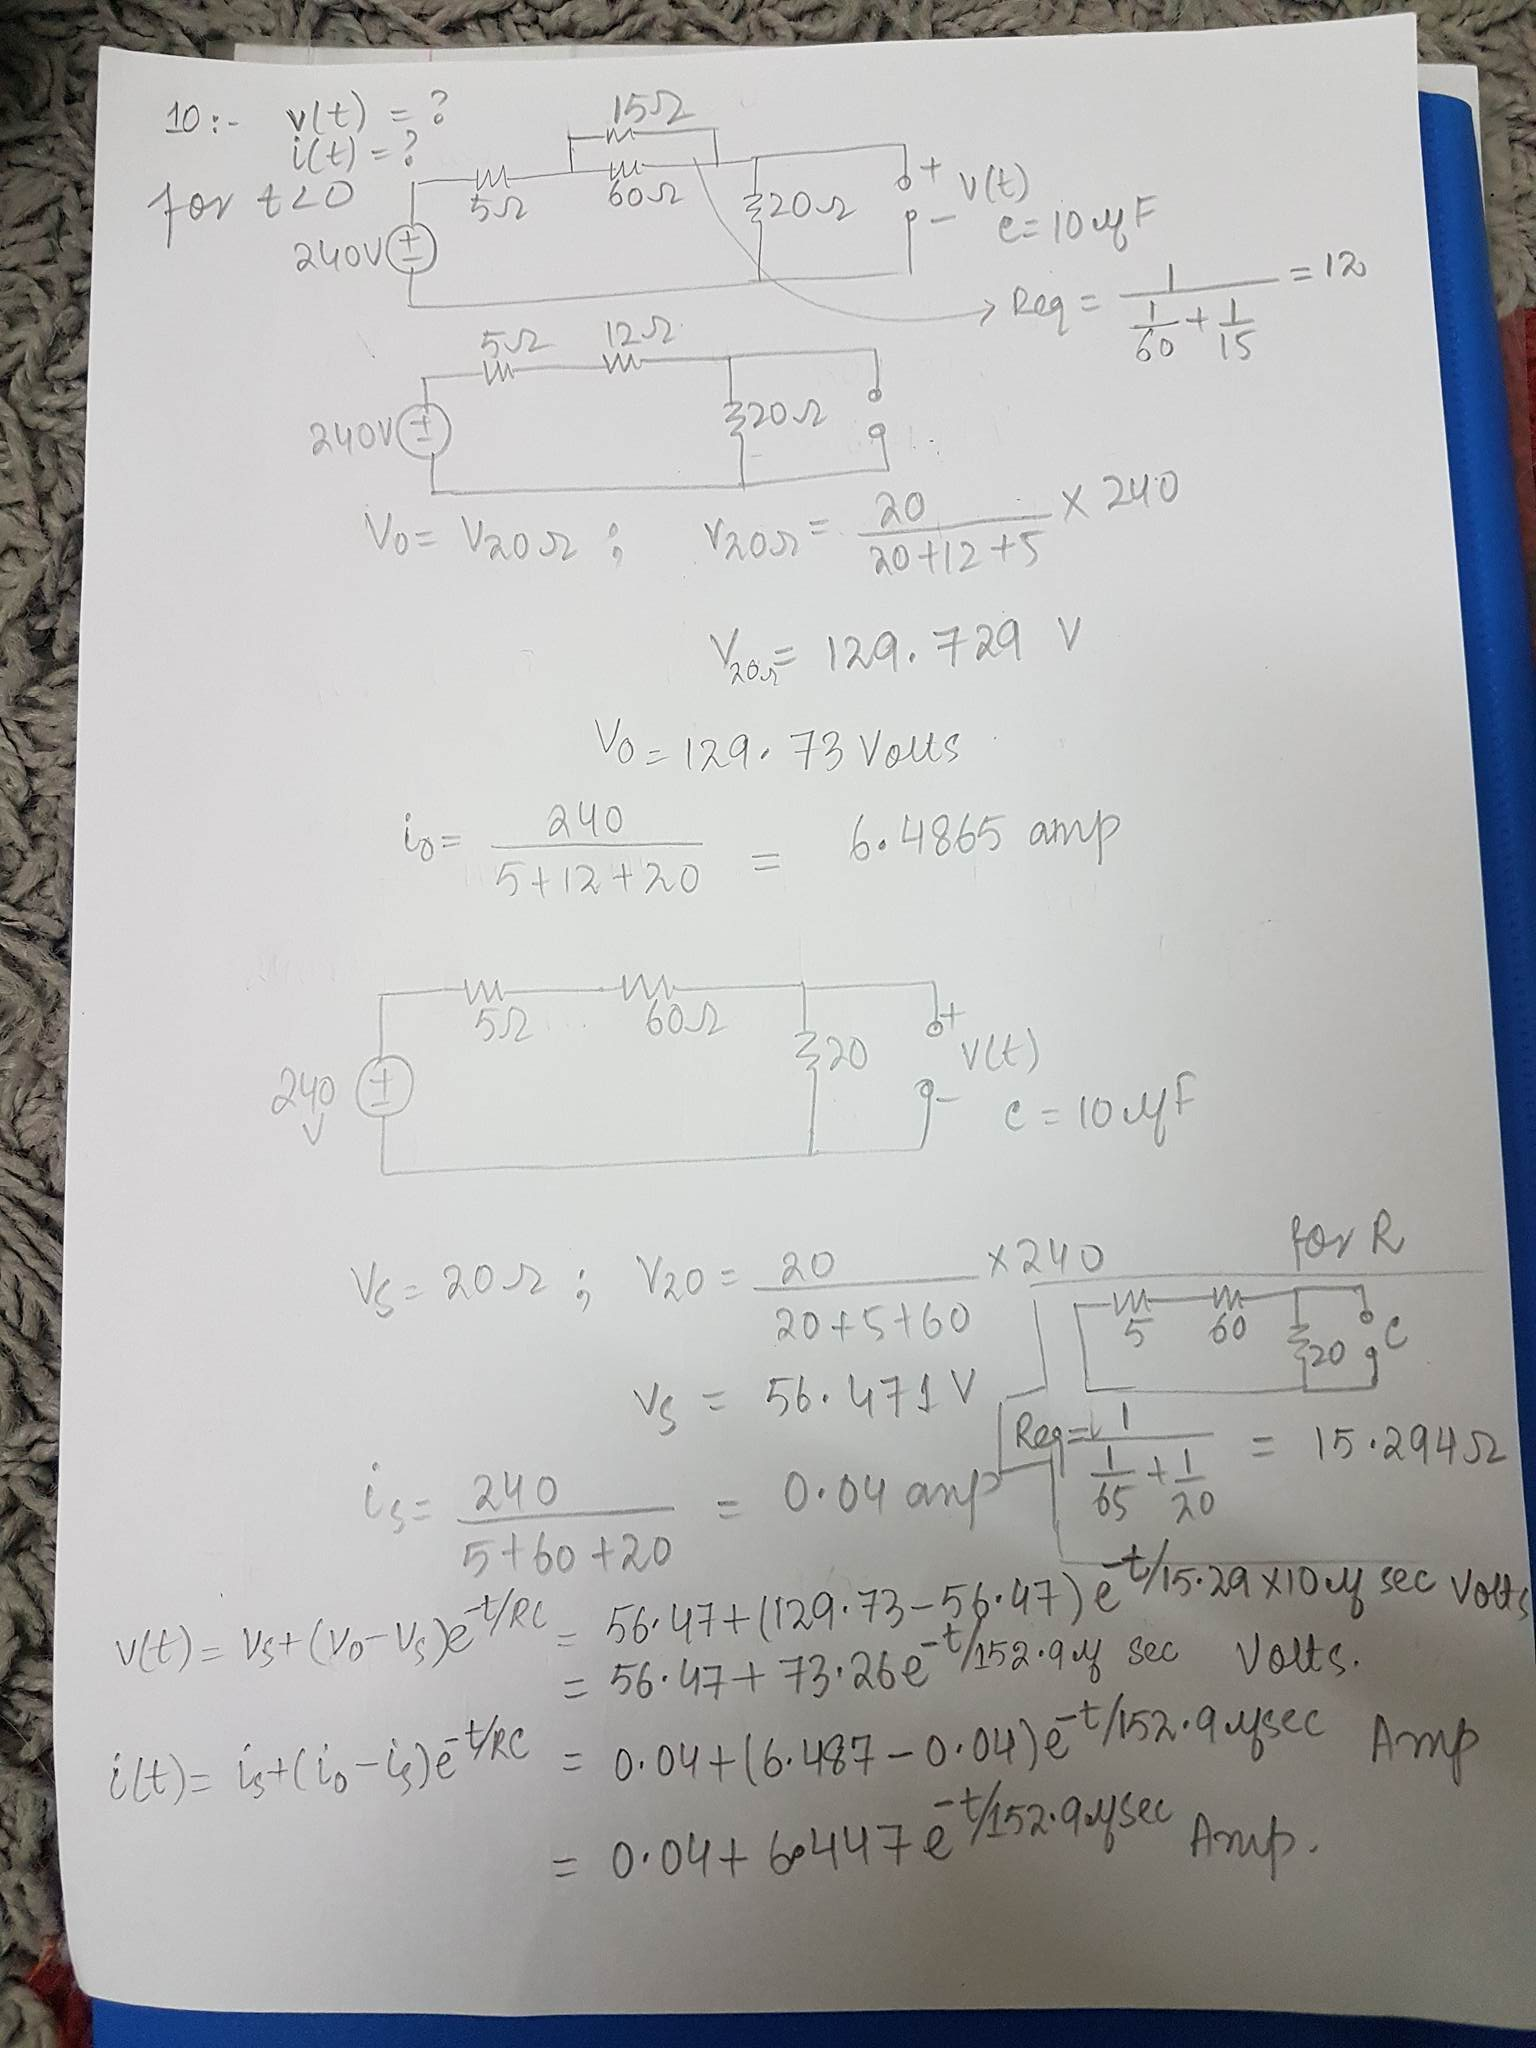 10:- v(t) = ?
i(t) = ?
for t<0
15Ω
5Ω 60Ω
240V + -
20Ω
+ v(t) -
c = 10 μF
Req = 1 / (1/60 + 1/15) = 12
5Ω 12Ω
240V + -
20Ω
V0 = V20Ω ; V20Ω = 20 / (20+12+5) × 240
V20Ω = 129.729 V
V0 = 129.73 Volts
i0 = 240 / (5+12+20) = 6.4865 amp
5Ω 60Ω
240 V + -
20
+ v(t) -
c = 10 μF
Vs = 20Ω ; V20 = 20 / (20+5+60) × 240
for R
5 60
20 C
Vs = 56.471 V
Req = 1 / (1/65 + 1/20) = 15.294Ω
is = 240 / (5+60+20) = 0.04 amp
v(t) = Vs+(V0-Vs)e^-t/RC = 56.47+(129.73-56.47)e^-t/15.29×10μ sec Volts
= 56.47+73.26e^-t/152.9μ sec Volts.
i(t) = is+(i0-is)e^-t/RC = 0.04+(6.487-0.04)e^-t/152.9μsec Amp
= 0.04+6.447e^-t/152.9μsec Amp.